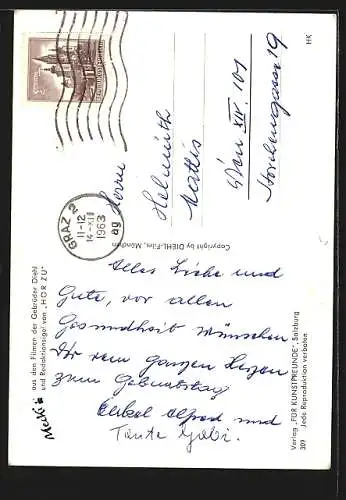 GRAZ 2
11-12
14·XII
1963
ag
REPUBLIK ÖSTERREICH
Herrn
Helmuth
Mattis
Wien XIV. 101
Storchengasse 19
HK
Copyright by DIEHL-Film, München
Alles Liebe und
Gute, vor allem
Gesundheit wünschen
Dir vom ganzen Herzen
zum Geburtstag
Onkel Alfred und
Tante Gabi.
Mecki
aus den Filmen der Gebrüder Diehl
und Redaktionsigel von „HÖR ZU"
Verlag „FÜR KUNSTFREUNDE", Salzburg
309 Jede Reproduktion verboten